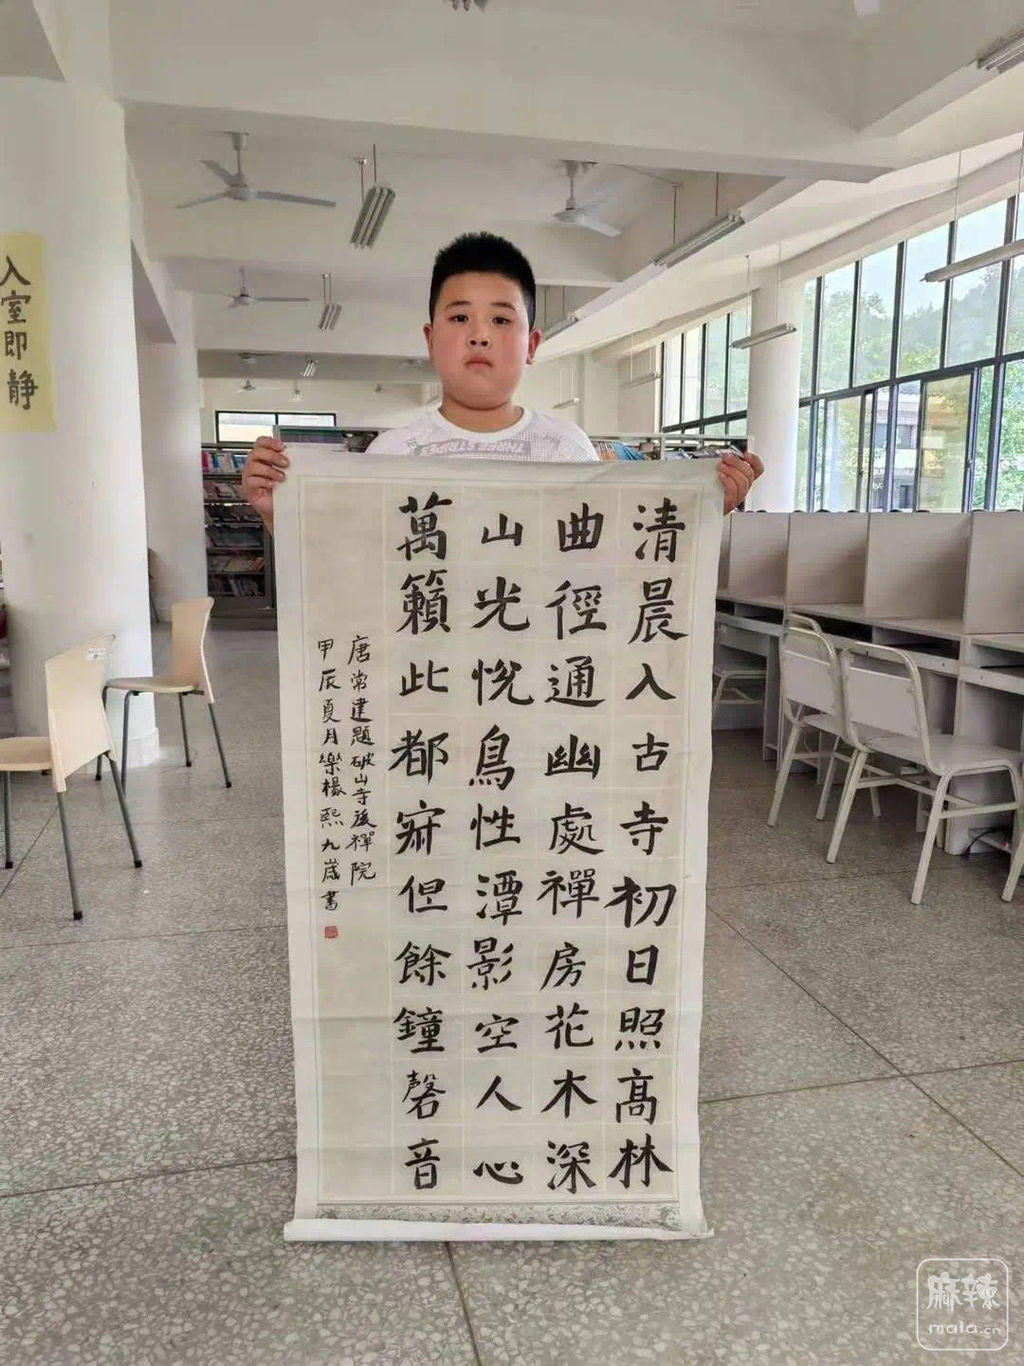 清晨入古寺初日照高林
曲徑通幽處禪房花木深
山光悅鳥性潭影空人心
萬籟此都寂但餘鐘磬音
唐常建題破山寺後禪院
甲辰夏月樂楊熙九歲書
入室即靜
THREE STRIPES
麻辣
mala.cn